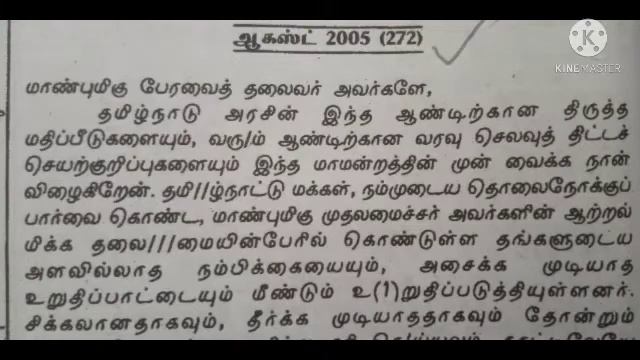 ஆகஸ்ட் 2005 (272)
KINEMASTER
மாண்புமிகு பேரவைத் தலைவர் அவர்களே,
தமிழ்நாடு அரசின் இந்த ஆண்டிற்கான திருத்த
மதிப்பீடுகளையும், வரு/ம் ஆண்டிற்கான வரவு செலவுத் திட்டச்
செயற்குறிப்புகளையும் இந்த மாமன்றத்தின் முன் வைக்க நான்
விழைகிறேன். தமி//ழ்நாட்டு மக்கள், நம்முடைய தொலைநோக்குப்
பார்வை கொண்ட, மாண்புமிகு முதலமைச்சர் அவர்களின் ஆற்றல்
மிக்க தலை///மையின்பேரில் கொண்டுள்ள தங்களுடைய
அளவில்லாத நம்பிக்கையையும், அசைக்க முடியாத
உறுதிப்பாட்டையும் மீண்டும் உ(1)றுதிப்படுத்தியுள்ளனர்.
சிக்கலானதாகவும், தீர்க்க முடியாததாகவும் தோன்றும்